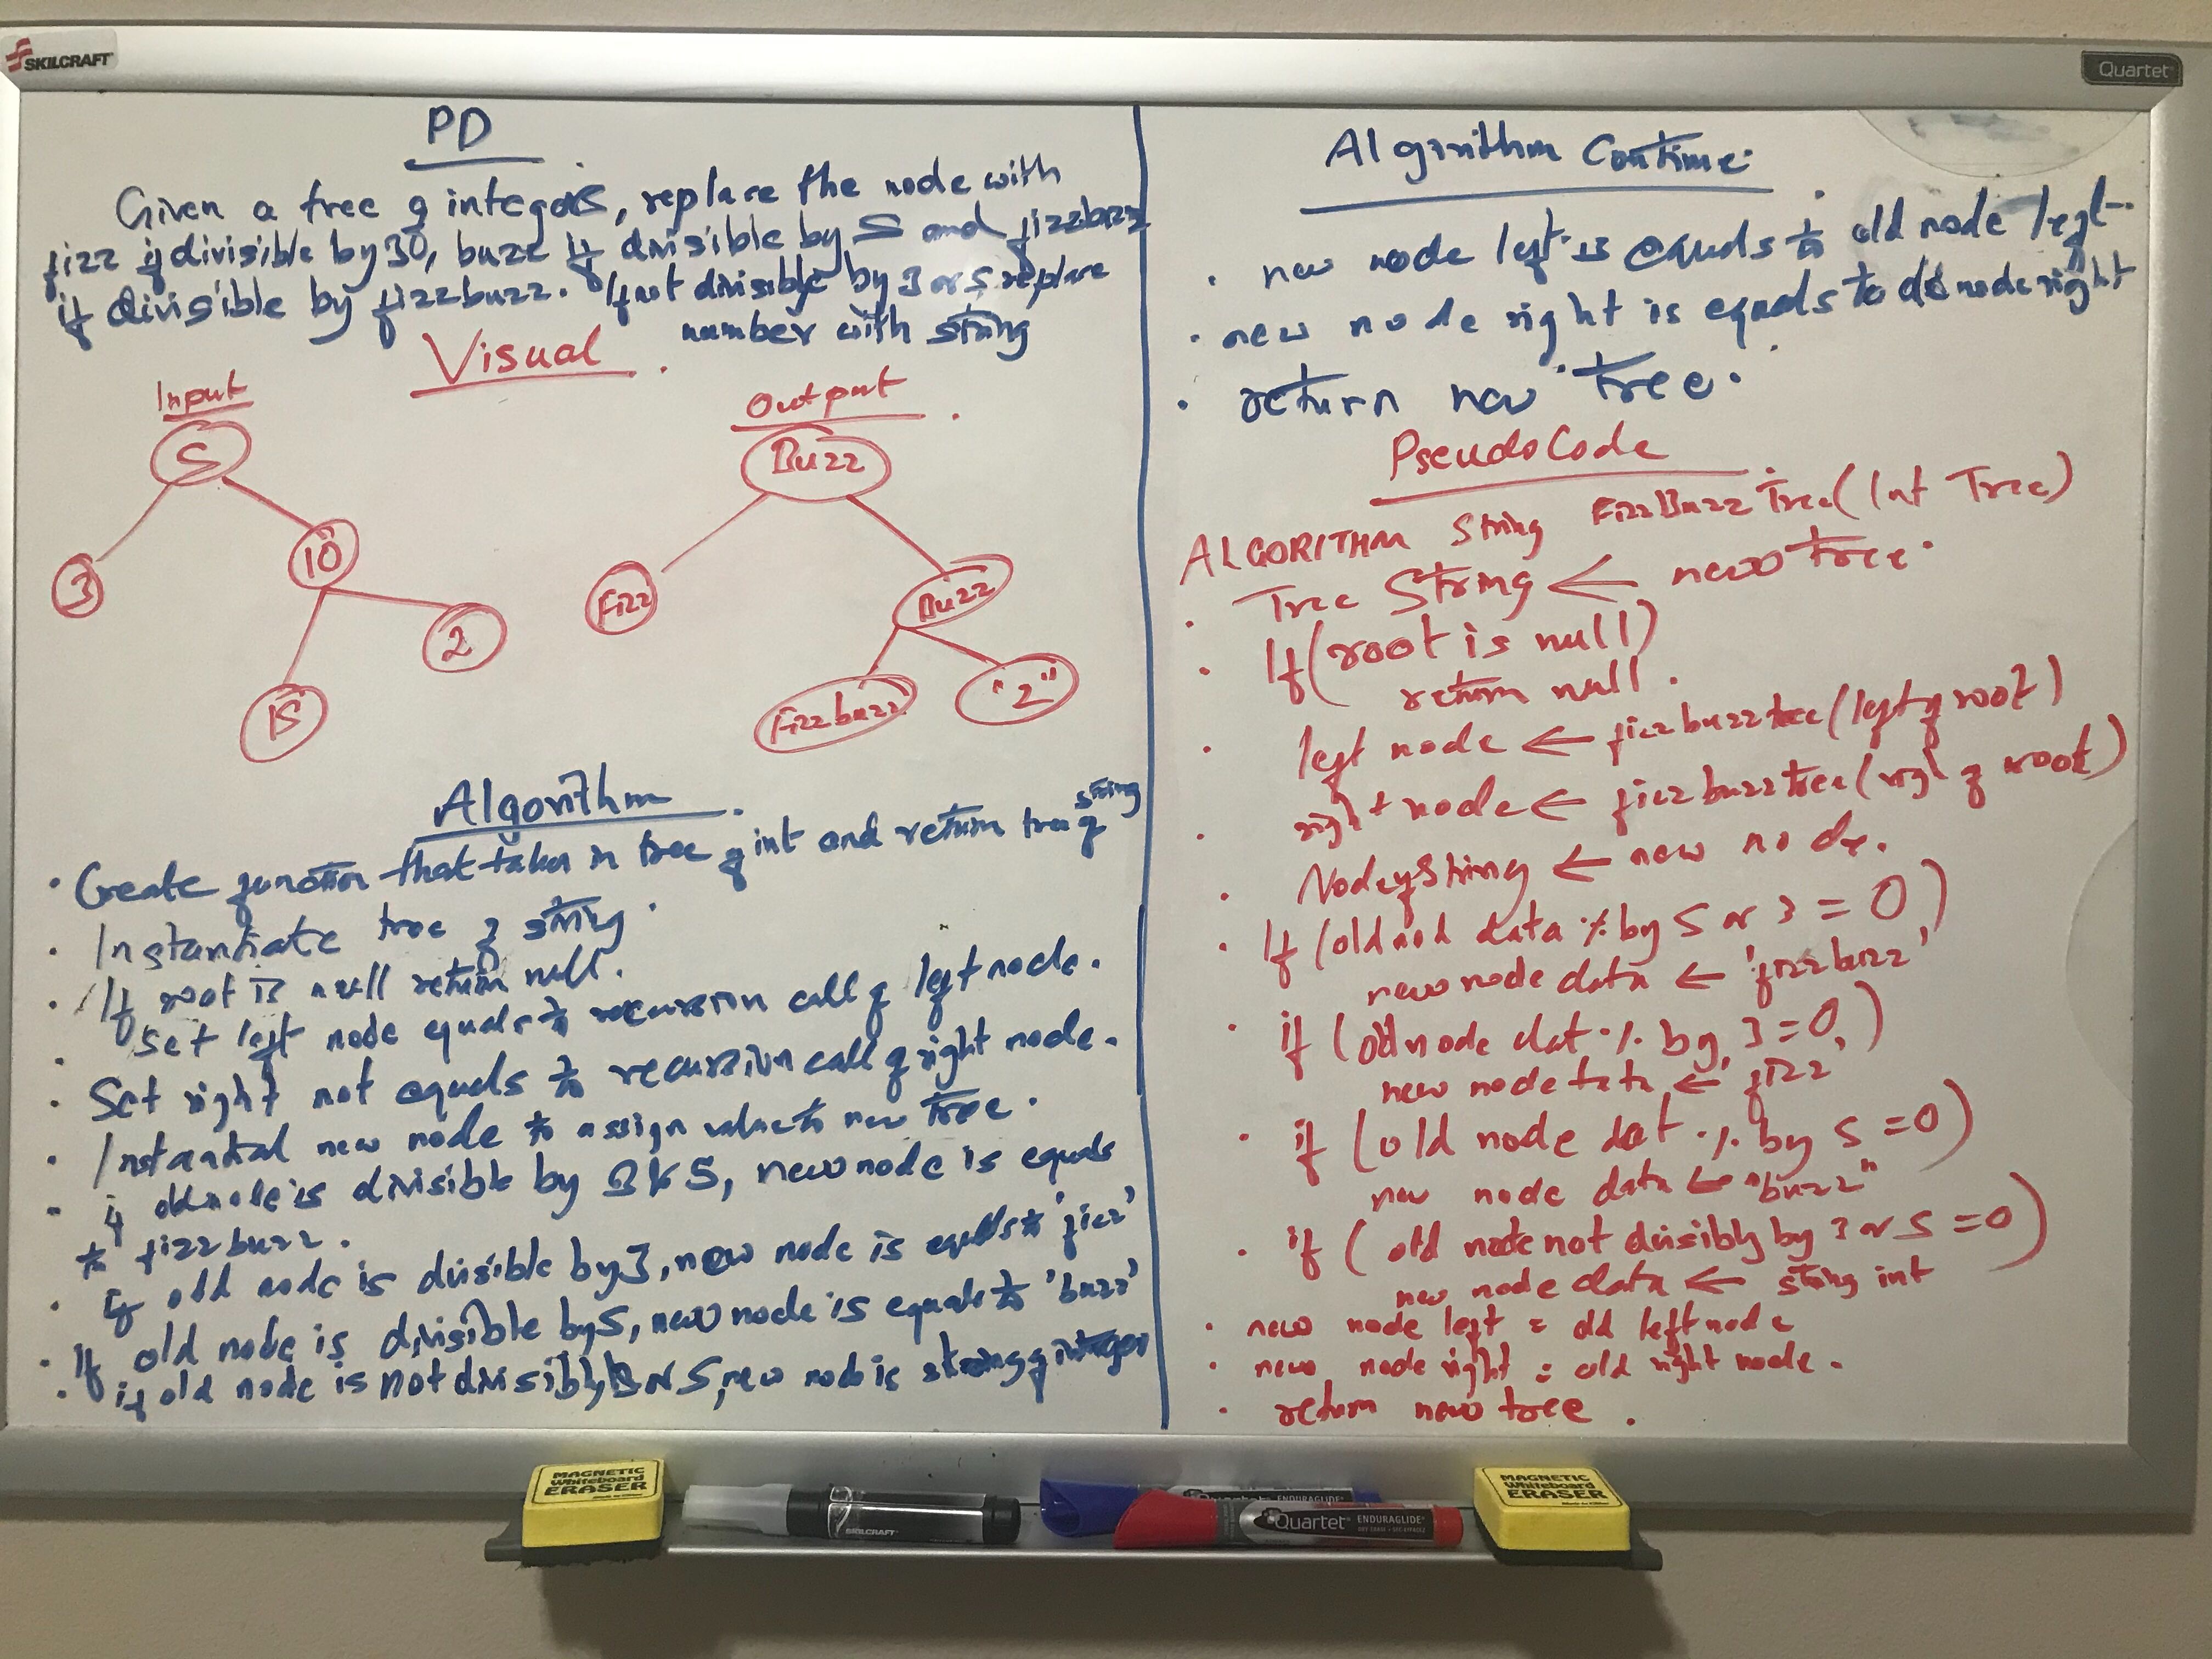 SKILCRAFT
Quartet
PD
Given a tree of integers, replace the node with
fizz if divisible by 30, buzz if divisible by 5 and fizzbuzz
if divisible by fizzbuzz. If not divisible by 3 or 5 replace
number with string
Visual
Input
5
3
10
15
2
Output
Buzz
Fizz
Buzz
Fizzbuzz
"2"
Algorithm
string
• Create function that takes in tree of int and return tree of
• Instantiate tree of string.
• If root is null return null.
• Set left node equals to recursion call of left node.
• Set right not equals to recursion call of right node.
• Instantial new node to assign value to new tree.
• if old node is divisible by 3 & 5, new node is equals
to fizzbuzz.
• If old node is divisible by 3, new node is equals to 'fizz'
• If old node is divisible by 5, new node is equals to 'buzz'
• if old node is not divisibly 3 or 5, new node is string of integer
Algorithm Continue.
• new node left is equals to old node left.
• new node right is equals to old node right
• return new tree.
PseudoCode
ALGORITHM String FizzBuzzTree(Int Tree)
• Tree String ← new tree.
• If (root is null)
return null.
• left node ← fizzbuzztree(left of root)
• right node ← fizzbuzztree(righ of root)
• NodeofString ← new node.
• If (old nod data % by 5 or 3 = 0)
new node data ← 'fizzbuzz'
• if (old node dat % by 3 = 0)
new node tata ← 'fizz'
• if (old node dat % by 5 = 0)
new node data ← "buzz"
• if (old node not divisibly by 3 or 5 = 0)
new node data ← string int
• new node left = old left node
• new node right = old right node.
• return new tree.
MAGNETIC
Whiteboard
ERASER
SKILCRAFT
Quartet ENDURAGLIDE
Quartet ENDURAGLIDE
MAGNETIC
Whiteboard
ERASER